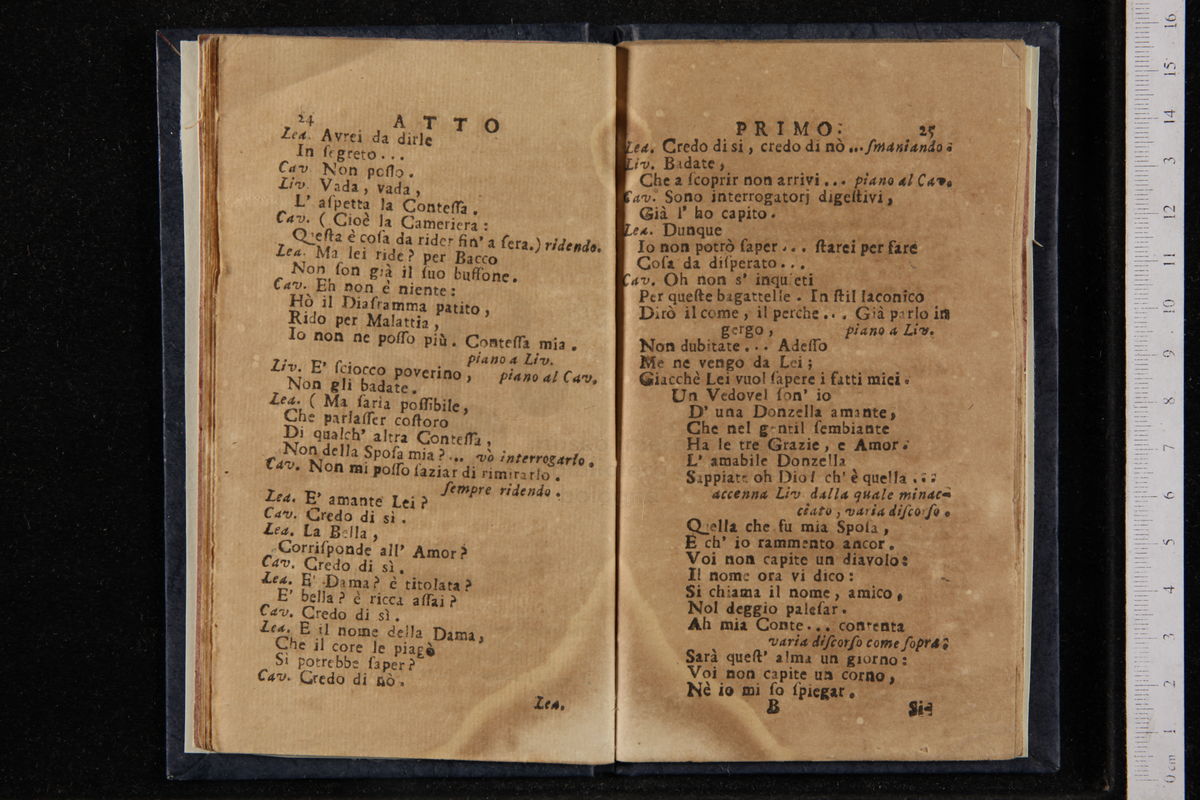 24 ATTO
Lea. Avrei da dirle
In ſegreto...
Cav. Non poſſo.
Liv. Vada, vada,
L' aſpetta la Conteſſa.
Cav. ( Cioè la Cameriera:
Queſta è coſa da rider fin' a ſera.) ridendo.
Lea. Ma lei ride? per Bacco
Non ſon già il ſuo buffone.
Cav. Eh non è niente:
Hò il Diaframma patito,
Rido per Malattia,
Io non ne poſſo più. Conteſſa mia.
piano a Liv.
Liv. E' ſciocco poverino, piano al Cav.
Non gli badate.
Lea. ( Ma ſaria poſſibile,
Che parlaſſer coſtoro
Di qualch' altra Conteſſa,
Non della Spoſa mia?... vo interrogarlo.
Cav. Non mi poſſo ſaziar di rimirarlo.
ſempre ridendo.
Lea. E' amante Lei?
Cav. Credo di sì.
Lea. La Bella,
Corriſponde all' Amor?
Cav. Credo di sì.
Lea. E' Dama? è titolata?
E' bella? è ricca aſſai?
Cav. Credo di sì.
Lea. E il nome della Dama,
Che il core le piagò
Si potrebbe ſaper?
Cav. Credo di nò.
Lea.
PRIMO. 25
Lea. Credo di si, credo di nò... ſmaniando.
Liv. Badate,
Che a ſcoprir non arrivi... piano al Cav.
Cav. Sono interrogatorj digeſtivi,
Già l' ho capito.
Lea. Dunque
Io non potrò ſaper... ſtarei per fare
Coſa da diſperato...
Cav. Oh non s' inquieti
Per queſte bagattelle. In ſtil laconico
Dirò il come, il perche... Già parlo in
gergo, piano a Liv.
Non dubitate... Adeſſo
Me ne vengo da Lei;
Giacchè Lei vuol ſapere i fatti miei.
Un Vedovel ſon' io
D' una Donzella amante,
Che nel gentil ſembiante
Ha le tre Grazie, e Amor.
L' amabile Donzella
Sappiate oh Dio! ch' è quella...
accenna Liv dalla quale minac-
ciato, varia diſcorſo.
Quella che fu mia Spoſa,
E ch' io rammento ancor.
Voi non capite un diavolo:
Il nome ora vi dico:
Si chiama il nome, amico,
Nol deggio paleſar.
Ah mia Conte... contenta
varia diſcorſo come ſopra.
Sarà queſt' alma un giorno:
Voi non capite un corno,
Nè io mi ſo ſpiegar.
B